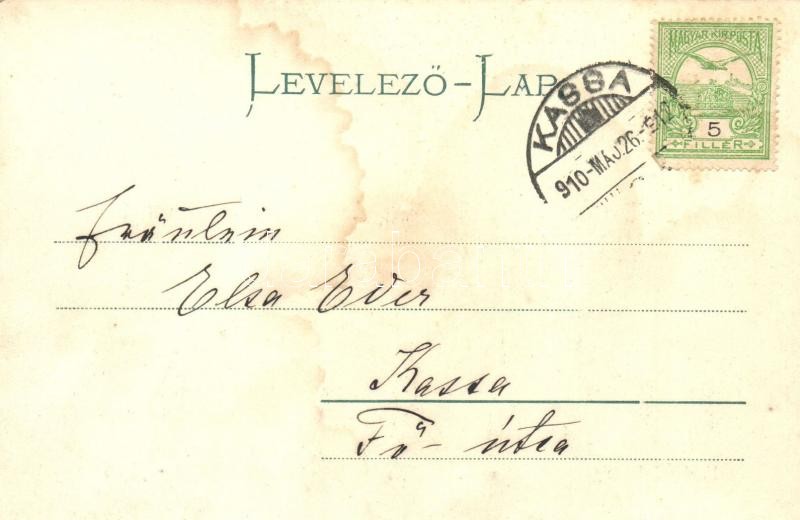 LEVELEZŐ-LAP
MAGYAR KIR. POSTA
5
FILLÉR
KASSA
910-MÁJ.26.
Fräulein
Elsa Eder
Kassa
Fő-útca